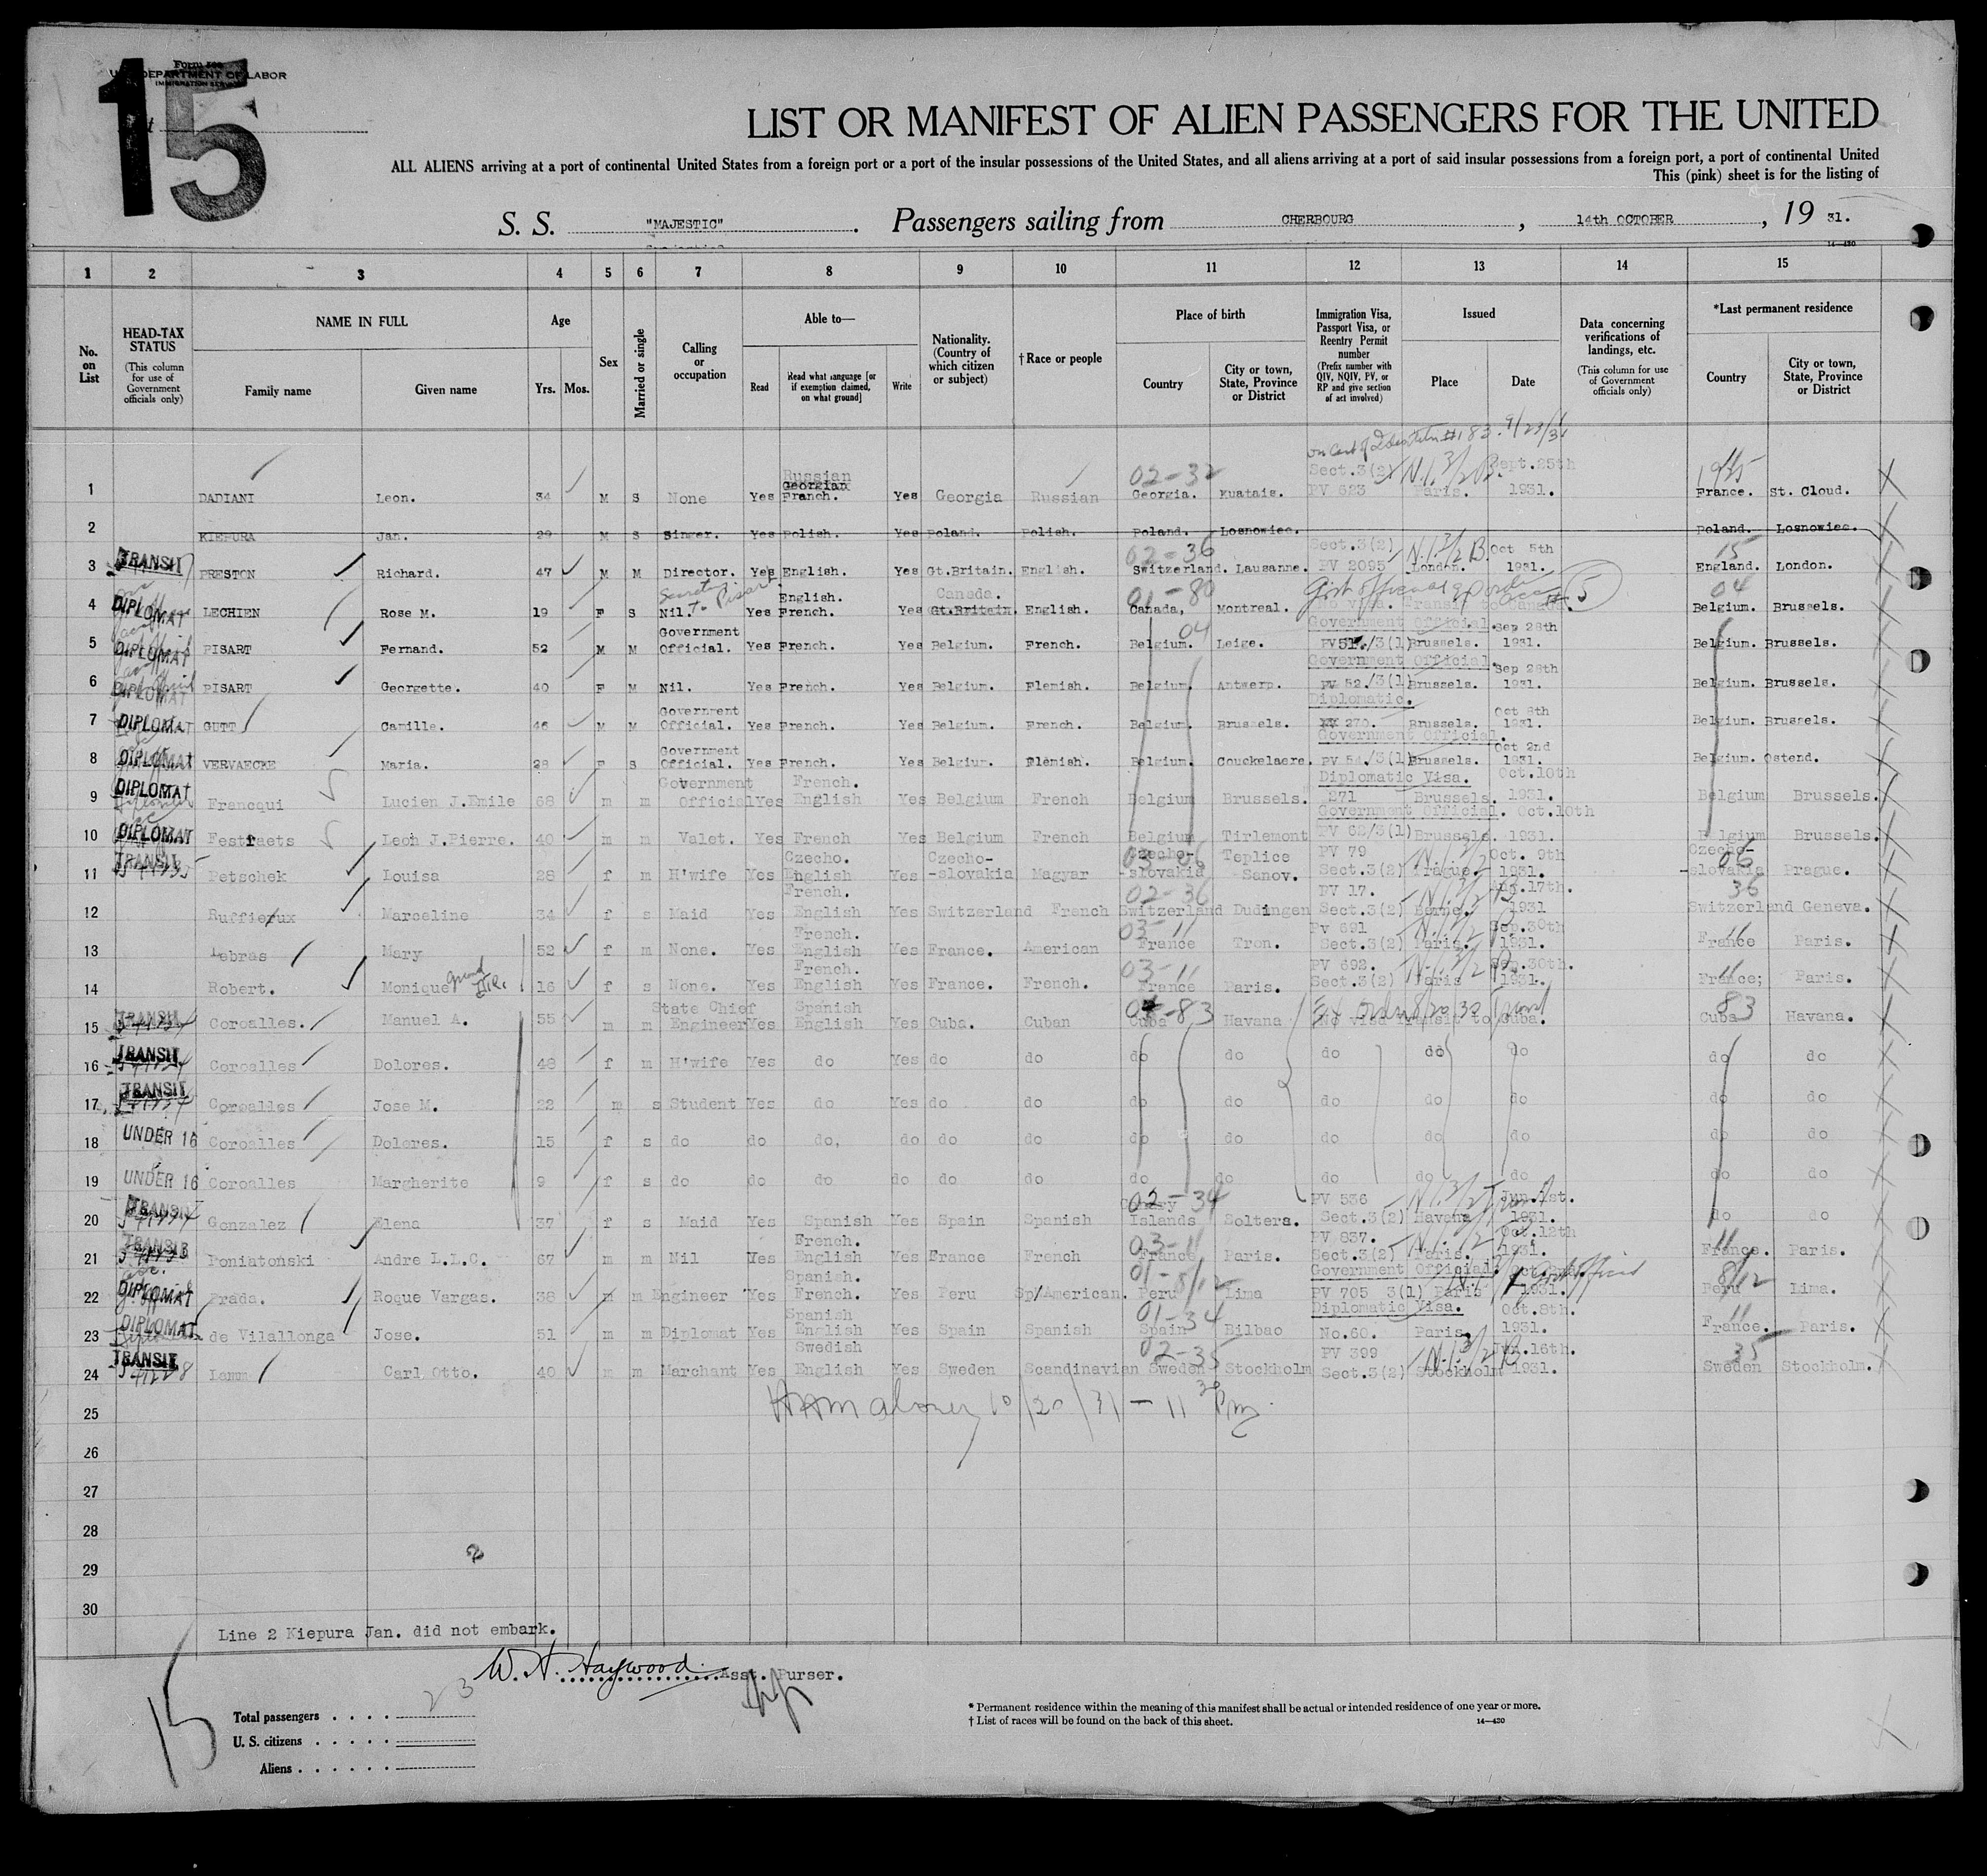 15
Form 500
U. S. DEPARTMENT OF LABOR
IMMIGRATION SERVICE
LIST OR MANIFEST OF ALIEN PASSENGERS FOR THE UNITED
ALL ALIENS arriving at a port of continental United States from a foreign port or a port of the insular possessions of the United States, and all aliens arriving at a port of said insular possessions from a foreign port, a port of continental United
This (pink) sheet is for the listing of
S. S. "MAJESTIC". Passengers sailing from CHERBOURG, 14th OCTOBER, 19 31.
14—430
1 2 3 4 5 6 7 8 9 10 11 12 13 14 15
No. on List
HEAD-TAX STATUS (This column for use of Government officials only)
NAME IN FULL Family name Given name
Age Yrs. Mos.
Sex
Married or single
Calling or occupation
Able to— Read Read what language [or if exemption claimed, on what ground] Write
Nationality. (Country of which citizen or subject)
† Race or people
Place of birth Country City or town, State, Province or District
Immigration Visa, Passport Visa, or Reentry Permit number (Prefix number with QIV, NQIV, PV, or RP and give section of act involved)
Issued Place Date
Data concerning verifications of landings, etc. (This column for use of Government officials only)
*Last permanent residence Country City or town, State, Province or District
1 DADIANI Leon. 34 M S None Yes Russian Georgian Franch. Yes Georgia Russian 02-32 Georgia. Kuatais. Sect.3(2) PV 623 Paris. Sept.25th 1931. France. St. Cloud.
2 KIEPURA Jan. 29 M S Singer. Yes Polish. Yes Poland. Polish. Poland. Losnowiec. Poland. Losnowiec.
3 TRANSIT PRESTON Richard. 47 M M Director. Yes English. Yes Gt.Britain. English. 02-36 Switzerland. Lausanne. Sect.3(2) PV 2095 London. Oct 5th 1931. 15 England. London.
4 DIPLOMAT LECHIEN Rose M. 19 F S Nil. Secretary to Pisart Yes English. French. Yes Canada. Gt.Britain. English. 01-80 Canada, Montreal. No visa. Transit to Canada. 5 04 Belgium. Brussels.
5 DIPLOMAT PISART Fernand. 52 M M Government Official. Yes French. Yes Belgium. French. 04 Belgium. Leige. Government Official. PV 51./3(1) Brussels. Sep 28th 1931. Belgium. Brussels.
6 DIPLOMAT PISART Georgette. 40 F M Nil. Yes French. Yes Belgium. Flemish. Belgium. Antwerp. Government Official. PV 52./3(1) Brussels. Sep 28th 1931. Belgium. Brussels.
7 DIPLOMAT GUTT Camille. 46 M M Government Official. Yes French. Yes Belgium. French. Belgium. Brussels. Diplomatic. 270. Brussels. Oct 8th 1931. Belgium. Brussels.
8 DIPLOMAT VERVAECKE Maria. 28 F S Government Official. Yes French. Yes Belgium. Flemish. Belgium. Couckelaere. Government Official. PV 54./3(1) Brussels. Oct 2nd 1931. Belgium. Ostend.
9 DIPLOMAT Francqui Lucien J.Emile 68 m m Government Official Yes French. English Yes Belgium French Belgium Brussels. Diplomatic Visa. 271 Brussels. Oct.10th 1931. Belgium Brussels.
10 DIPLOMAT Festraets Leon J.Pierre. 40 m m Valet. Yes French Yes Belgium French Belgium Tirlemont Government Official. PV 62/3(1) Brussels. Oct.10th 1931. Belgium Brussels.
11 TRANSIT Petschek Louisa 28 f m H'wife Yes Czecho. English Yes Czecho-slovakia Magyar 03-06 Czecho-slovakia Teplice Sanov. PV 79 Sect.3(2) Prague. Oct. 9th 1931. 06 Czecho-slovakia Prague.
12 Ruffieux Marceline 34 f s Maid Yes French. English Yes Switzerland French 02-36 Switzerland Dudingen PV 17. Sect.3(2) Berne. Aug.17th. 1931 36 Switzerland Geneva.
13 Lebras Mary 52 f m None. Yes French. English Yes France. American 03-11 France Tron. PV 691 Sect.3(2) Paris. Sep.30th 1931. 11 France Paris.
14 Robert. Monique 16 f s None. Yes French. English Yes France. French. 03-11 France Paris. PV 692. Sect.3(2) Paris Sep.30th. 1931. 11 France; Paris.
15 TRANSIT Coroalles. Manuel A. 55 m m State Chief Engineer Yes Spanish English Yes Cuba. Cuban 83 Cuba Havana No visa transit to Cuba. 83 Cuba Havana.
16 TRANSIT Coroalles Dolores. 48 f m H'wife Yes do Yes do do do do do do do do do
17 TRANSIT Coroalles Jose M. 22 m s Student Yes do Yes do do do do do do do do do
18 UNDER 16 Coroalles Dolores. 15 f s do do do, do do do do do do do do do do
19 UNDER 16 Coroalles Margherite 9 f s do do do do do do do do do do do do do
20 TRANSIT Gonzalez Elena 37 f s Maid Yes Spanish Yes Spain Spanish 02-34 Islands Soltera. PV 536 Sect.3(2) Havana Jun.1st. 1931. do do
21 TRANSIT Poniatonski Andre L.L.C. 67 m m Nil Yes French. English Yes France French 03-11 France Paris. PV 837. Sect.3(2) Paris. Oct.12th 1931. 11 France. Paris.
22 DIPLOMAT Prada. Roque Vargas. 38 m m Engineer Yes Spanish. French. Yes Peru Sp/American. 01-8/12 Peru Lima Government Official. PV 705 3(1) Paris 1931. 8/12 Peru Lima.
23 DIPLOMAT de Vilallonga Jose. 51 m m Diplomat Yes Spanish English Yes Spain Spanish 01-34 Spain Bilbao Diplomatic Visa. No.60. Paris Oct.8th. 1931. 11 France. Paris.
24 TRANSIT Lamm Carl Otto. 40 m m Marchant Yes Swedish English Yes Sweden Scandinavian 02-35 Sweden Stockholm PV 399 Sect.3(2) Stockholm Jun.16th. 1931. 35 Sweden Stockholm.
25
26
27
28
29
30
Line 2 Kiepura Jan. did not embark.
W. A. Haywood. Asst. Purser.
15
Total passengers . . . . 23
U. S. citizens . . . . .
Aliens . . . . . .
* Permanent residence within the meaning of this manifest shall be actual or intended residence of one year or more.
† List of races will be found on the back of this sheet. 14—430